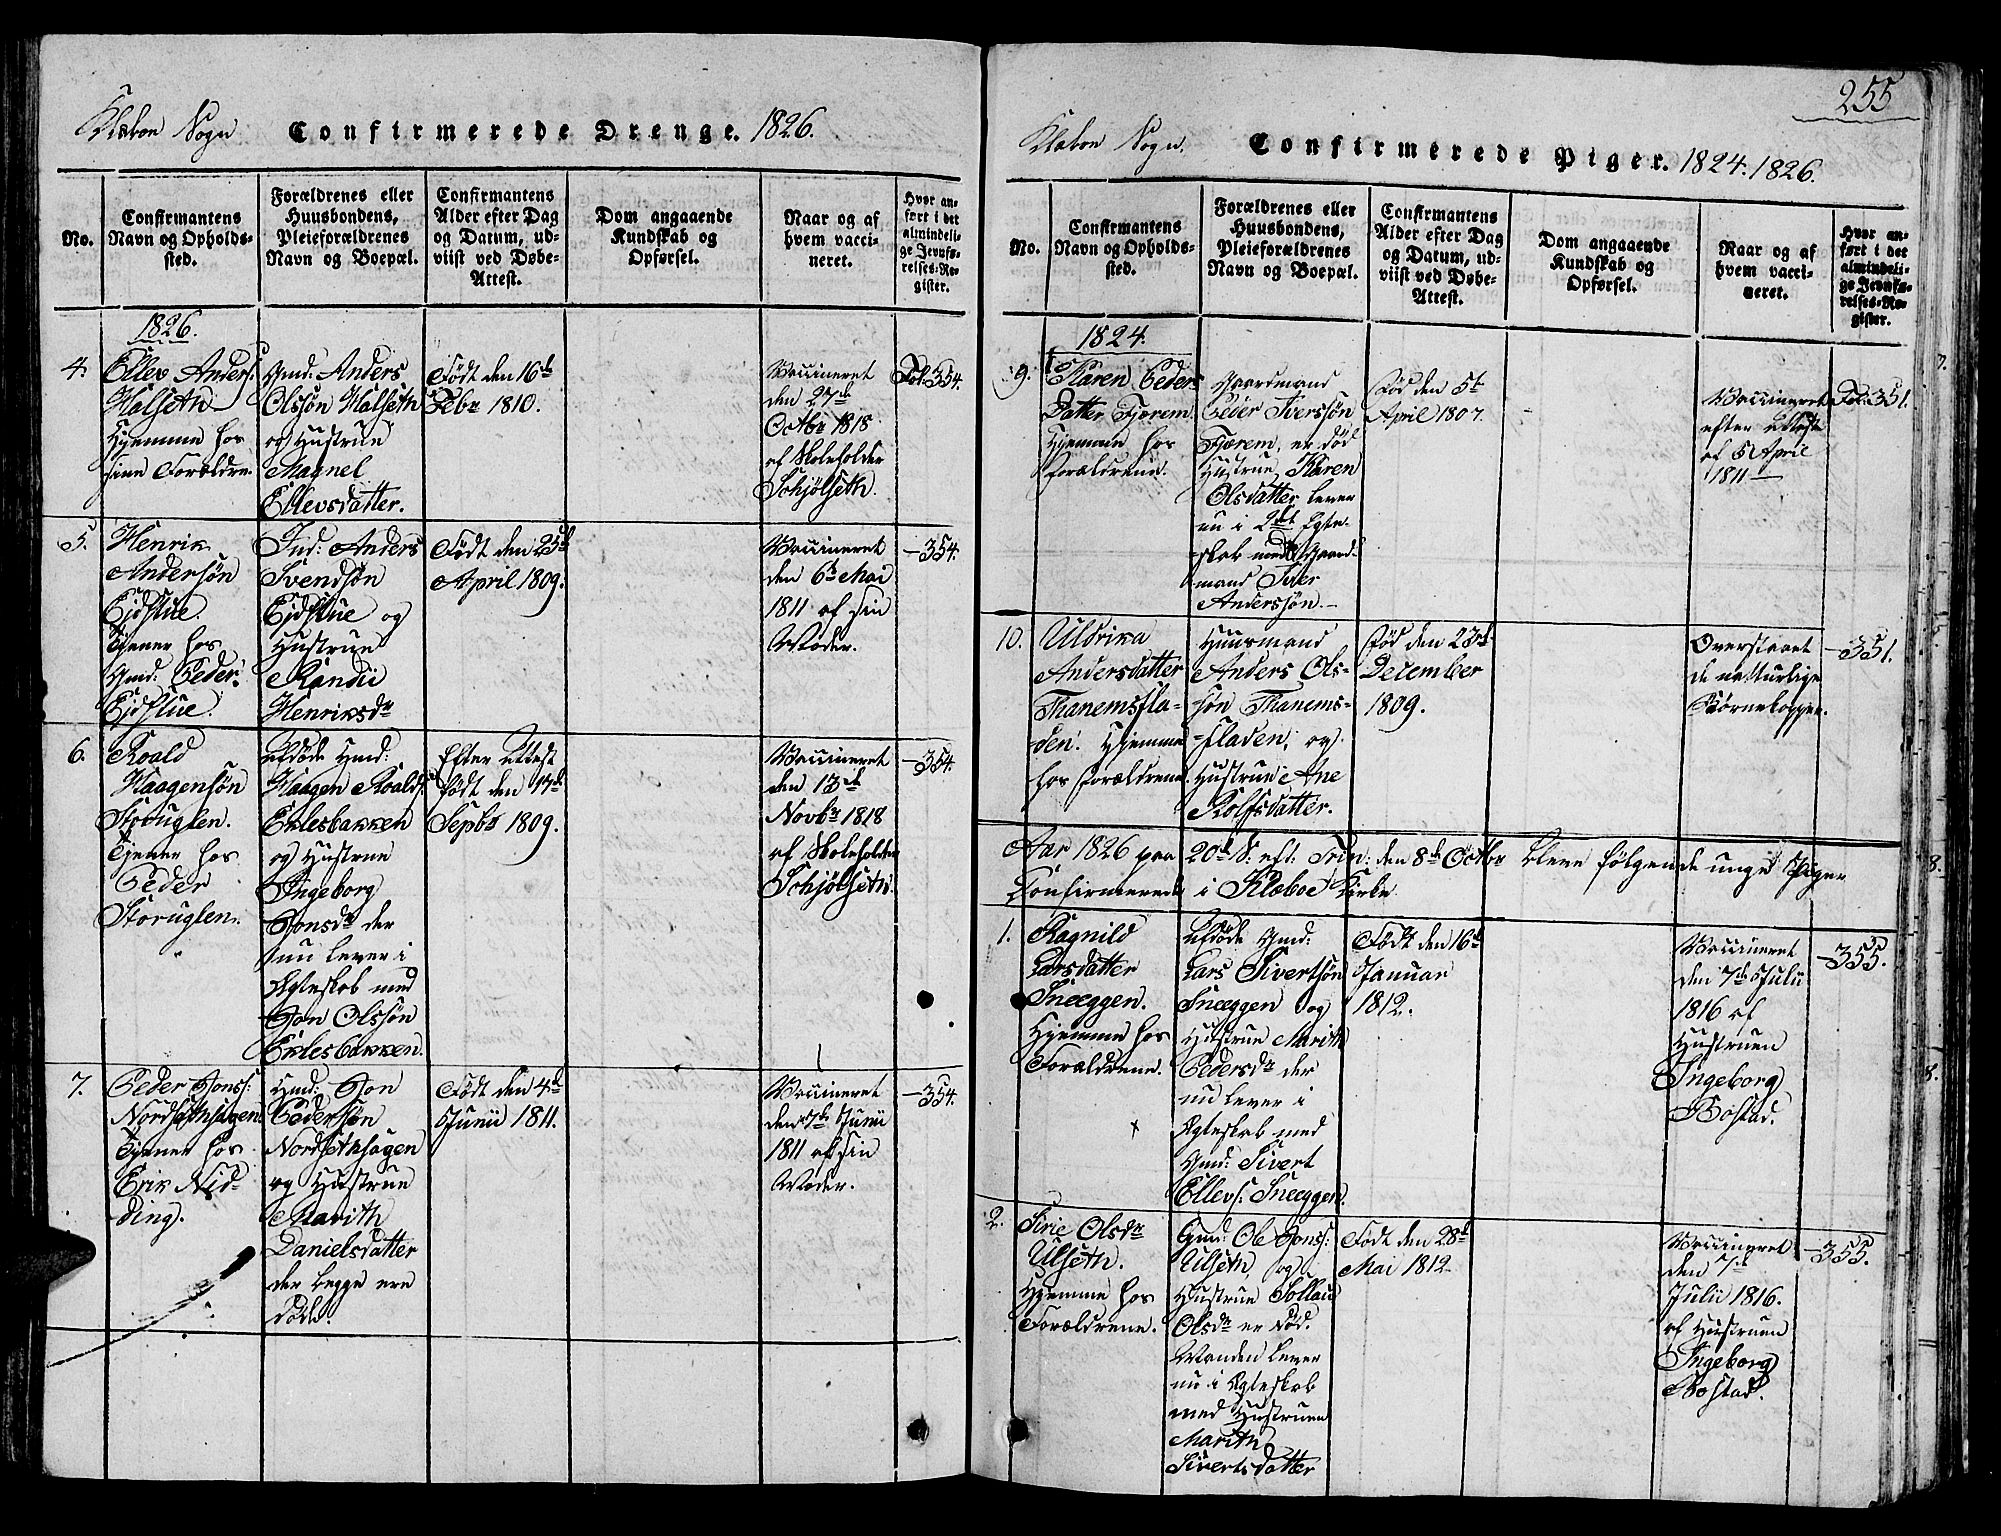 Klæboe Sogn Confirmerede Drenge. 1826.
No.
Confirmantens
Navn og Opholds-
sted.
Forældrenes eller
Huusbondens,
Pleieforældrenes
Navn og Boepæl.
Confirmantens
Alder efter Dag
og Datum, ud-
viist ved Døbe-
Attest.
Dom angaaende
Kundskab og
Opførsel.
Naar og af
hvem vacci-
neret.
Hvor an-
ført i det
almindeli-
ge Jevnfø-
relses-Re-
gister.
1826.
4.
Ellev Anders:
Halseth
Hjemme hos
sine Forældre.
Gmd: Anders
Olssøn Halseth
og Hustrue
Magnel
Ellevsdatter.
Født den 16de
Febr 1810.
Vaccineret
den 27de
Octbr 1818
af Skoleholder
Schjølseth.
Fol. 354.
5.
Henrik
Andersøn
Ejdstue.
Tjener hos
Gmd: Peder
Ejdstue.
Ind: Anders
Svendsøn
Ejdstue og
Hustrue
Randii
Henriksdr
Født den 25de
April 1809.
Vaccineret
den 6te Mai
1811 af sin
Moder.
—354.
6.
Roald
Haagensøn
Storuglen.
Tjener hos
Peder
Storuglen.
Afdøde Hmd:
Haagen Roalds:
Eklesbakken
og Hustrue
Ingeborg
Jonsdr der
nu lever i
Ægteskab med
Jon Olssøn
Eklesbakken.
Efter Attest
født den 17de
Sepbr 1809.
Vaccineret
den 13de
Novbr 1818
af Skoleholder
Schjølseth.
—354.
7.
Peder Jonss:
Nordsethhagen
Tjener hos
Erik Nid-
ding.
Hmd: Jon
Pedersøn
Nordsethhagen
og Hustrue
Marith
Danielsdatter
der begge ere
døde.
Født den 4de
Junii 1811.
Vaccineret
den 7de Junii
1811 af sin
Moder.
—354.
255
Klæboe Sogn. Confirmerede Piger. 1824. 1826.
No.
Confirmantens
Navn og Opholds-
sted.
Forældrenes eller
Huusbondens,
Pleieforældrenes
Navn og Boepæl.
Confirmantens
Alder efter Dag
og Datum, ud-
viist ved Døbe-
Attest.
Dom angaaende
Kundskab og
Opførsel.
Naar og af
hvem vacci-
neret.
Hvor an-
ført i det
almindeli-
ge Jevnfø-
relses-Re-
gister.
1824.
9.
Karen Peders
Datter Tjærem
Hjemme hos
Forældrene.
Gaardmand
Peder Iverssøn
Tjærem, er død
Hustrue Karen
Olsdatter lever
nu i 2det Egte-
skab med Gaard-
mand Iver
Anderssøn.
Fød den 5te
April 1807.
Vaccineret
efter Attest
af 5 April
1811
Fol. 351.
10.
Uldrika
Andersdatter
Thanemsfla-
den. Hjemme
hos Forældrene.
Huusmand
Anders Ols-
søn Thanems-
fladen, og
Hustrue Ane
Rolfsdatter.
Fød den 23de
December
1809.
Overstaaet
de natturlige
Børnekopper.
—351.
Aar 1826 paa 20de S: eft: Trin: den 8de Octbr bleve følgende unge Piger
Confirmerede i Klæboe Kirke
1.
Ragnild
Larsdatter
Sneeggen.
Hjemme hos
Forældrene.
Afdøde Gmd:
Lars Sivertsøn
Sneeggen og
Hustrue Marith
Pedersdr der
nu lever i
Ægteskab med
Gmd: Sivert
Ellevs: Sneeggen.
Født den 16de
Januar
1812.
Vaccineret
den 7de Julii
1816 af
Hustruen
Ingeborg
Bostad.
—355.
2.
Sirie Olsdr
Ulseth.
Hjemme hos
Forældrene.
Gmd: Ole Jonss:
Ulseth, og
Hustrue Sollau
Olsdr er død.
Manden lever
nu i Ægteskab
med Hustruen
Marith
Sivertsdatter
Født den 28de
Mai 1812
Vaccineret
den 7de
Julii 1816.
af Hustruen
Ingeborg
Bostad.
—355.